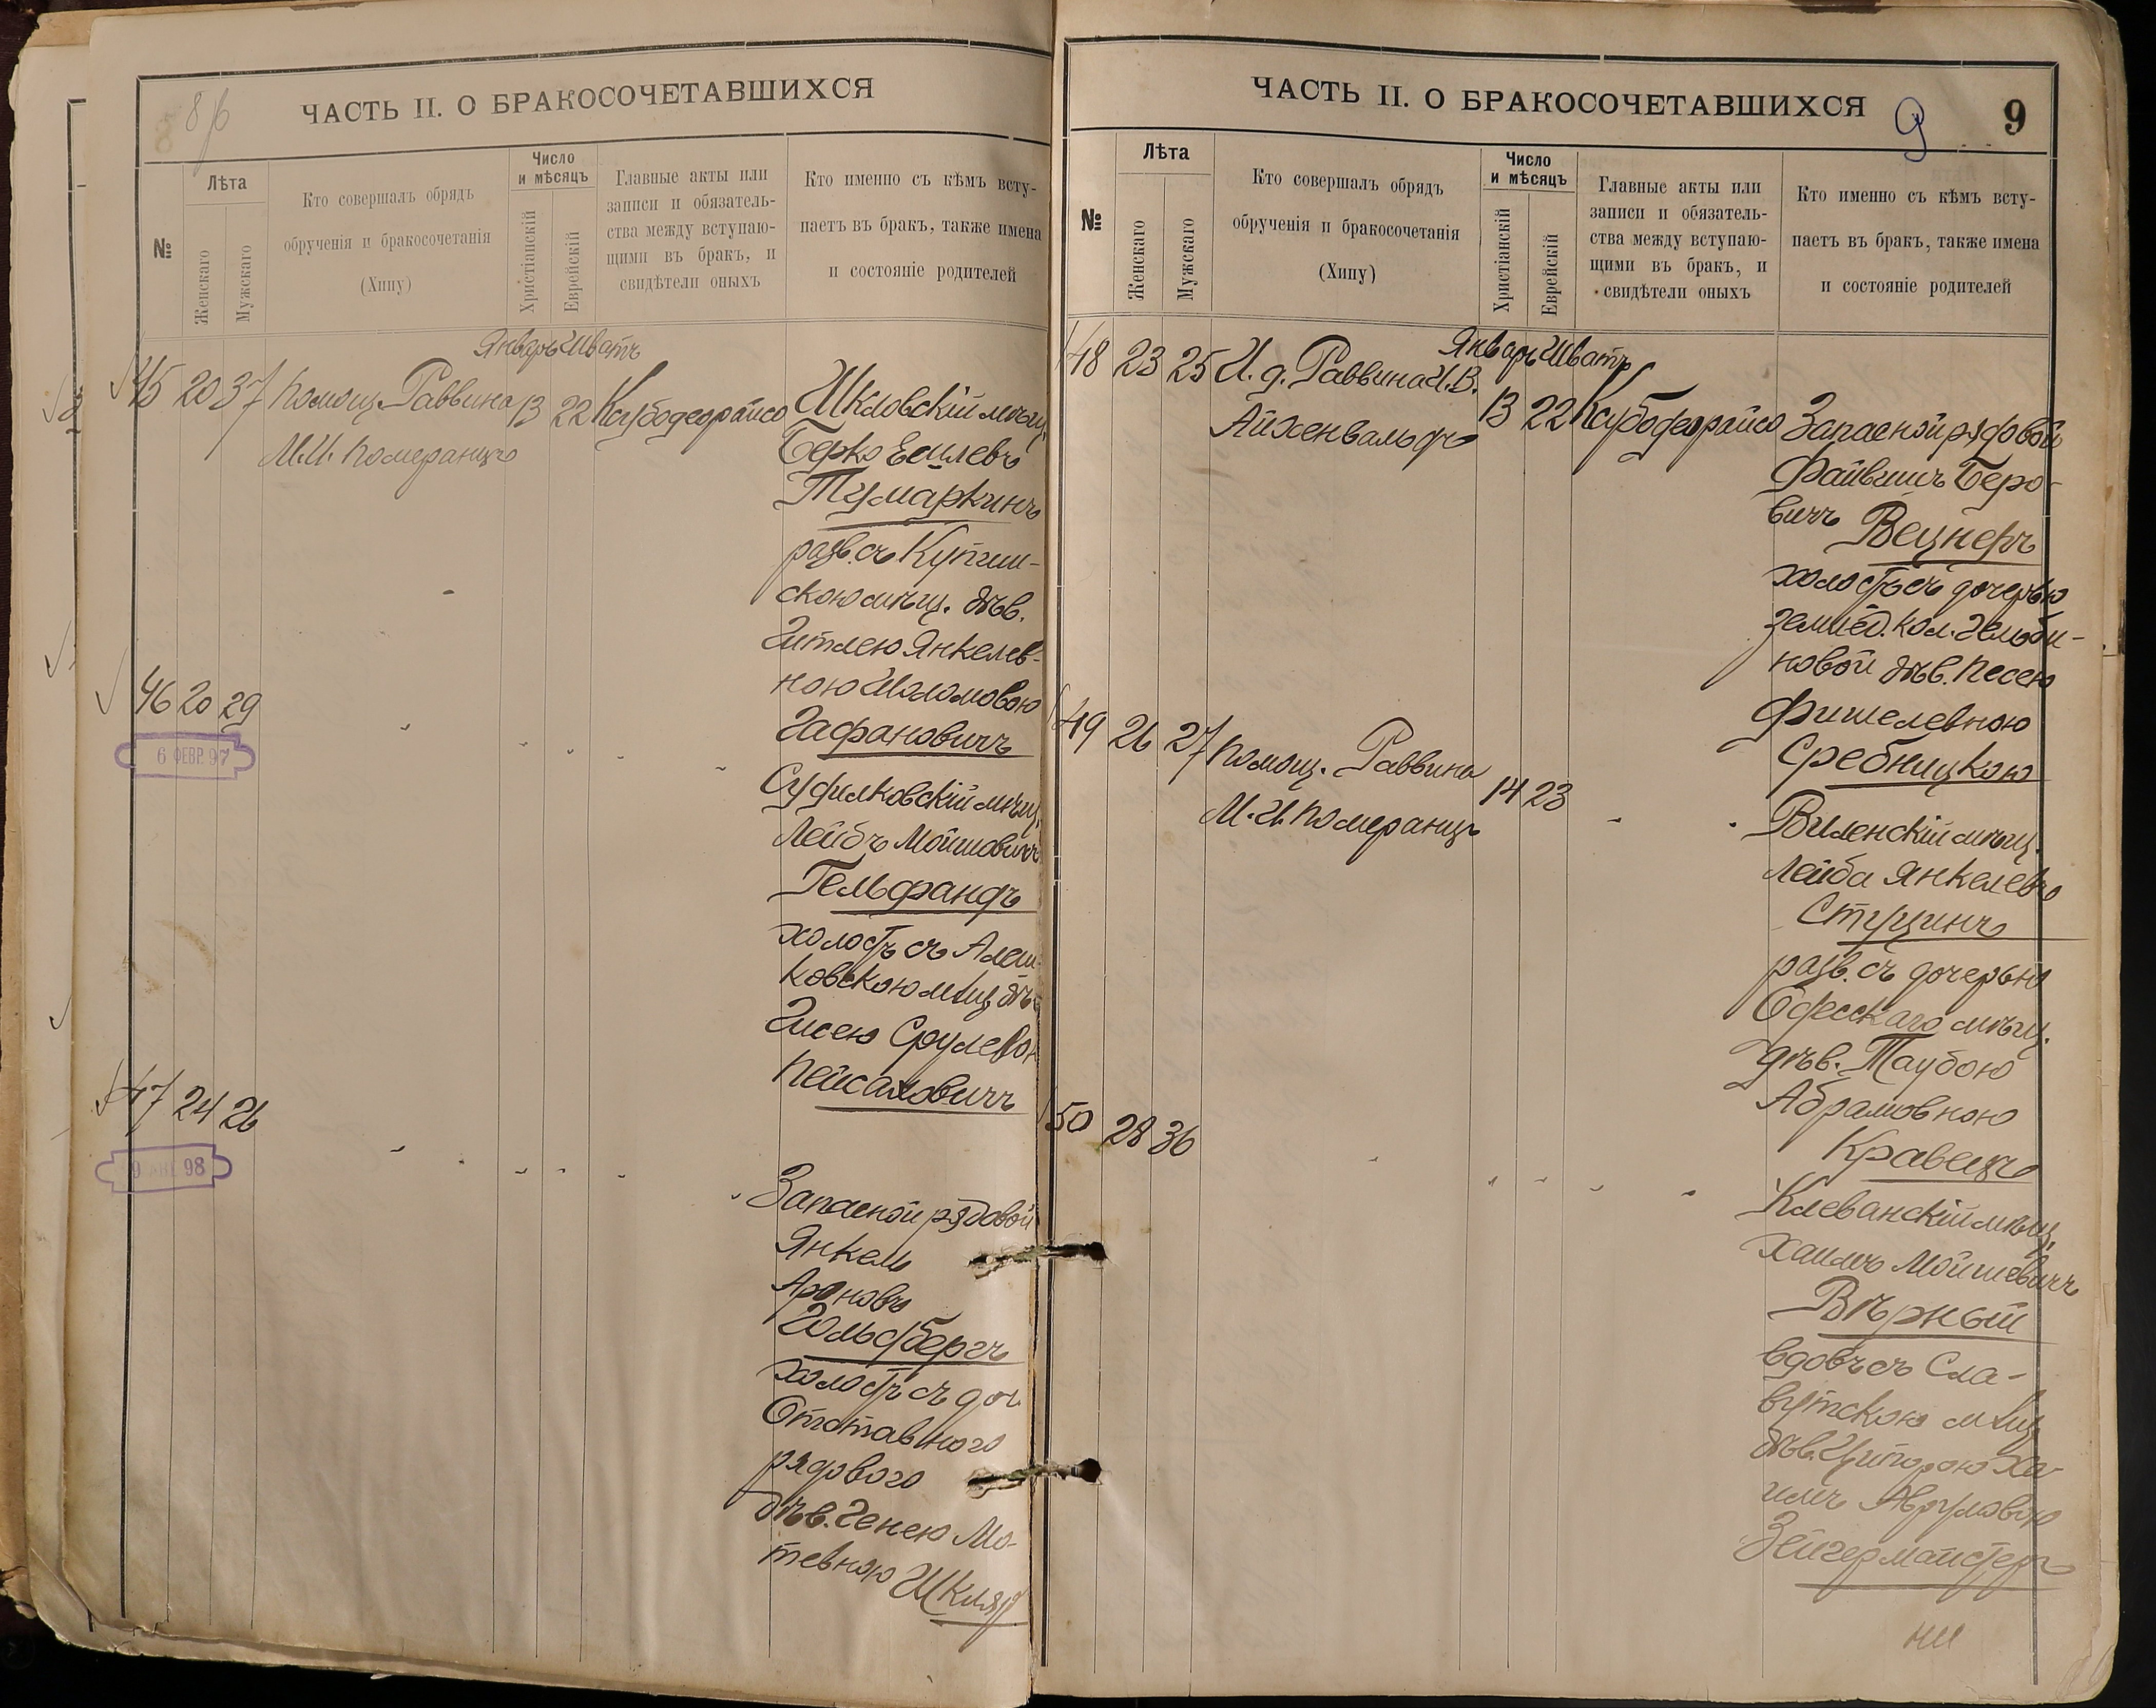 8/б
ЧАСТЬ II. О БРАКОСОЧЕТАВШИХСЯ
№
Лѣта
Женскаго
Мужскаго
Кто совершалъ обрядъ
обрученія и бракосочетанія
(Хипу)
Число
и мѣсяцъ
Христіанскій
Еврейскій
Главные акты или
записи и обязатель-
ства между вступаю-
щими въ бракъ, и
свидѣтели оныхъ
Кто именно съ кѣмъ всту-
паетъ въ бракъ, также имена
и состояніе родителей
Январь Шватъ
45 20 37 Помощ. Раввина 13 22 Ксубодеорайсо Шкловскій мѣщ.
М. И. Померанцъ
Берко Еселевъ
Тумаркинъ
разв. съ Купи-
скою мѣщ. дѣв.
Гитлею Янкелев-
ною Шоломовою
Гафановичъ
46 20 29
6 ФЕВР. 97
Судилковскій мѣщ.
Лейбъ Мойшовичъ
Гельфандъ
холостъ съ Алеш-
ковскою мѣщ. дѣв.
Гисею Срулевон
Пейсаховичъ
47 24 26
98
Запасной рядовой
Янкель
Ароновъ
Гольдбергъ
холостъ съ доч.
Отставного
рядового
дѣв. Генею Мо-
тевною Шкляр
ЧАСТЬ II. О БРАКОСОЧЕТАВШИХСЯ
9
9
№
Лѣта
Женскаго
Мужскаго
Кто совершалъ обрядъ
обрученія и бракосочетанія
(Хипу)
Число
и мѣсяцъ
Христіанскій
Еврейскій
Главные акты или
записи и обязатель-
ства между вступаю-
щими въ бракъ, и
свидѣтели оныхъ
Кто именно съ кѣмъ всту-
паетъ въ бракъ, также имена
и состояніе родителей
Январь Шватъ
48 23 25 И. д. Раввина И. В. 13 22 Ксубодеорайсо Запасной рядовой
Айхенвальдъ
Файвишъ Беро-
вичъ Вецнеръ
холостъ съ дочерью
землед. кол.
новой дѣв. Песею
Фишелевною
Сребницкою
49 26 27 Помощ. Раввина 14 23
М. И. Померанцъ
Виленскій мѣщ.
Лейба Янкелевъ
Стуцинъ
разв. съ дочерью
Одесскаго мѣщ.
дѣв. Таубою
Абрамовною
Кравецъ
50 28 36
Клеванскій мѣщ.
Хаимъ Мойшевичъ
Вѣрный
вдовъ съ Сла-
вутскою мѣщ.
дѣв. Ципорою Ха-
имъ Аврумовою
Зейгермайстеръ